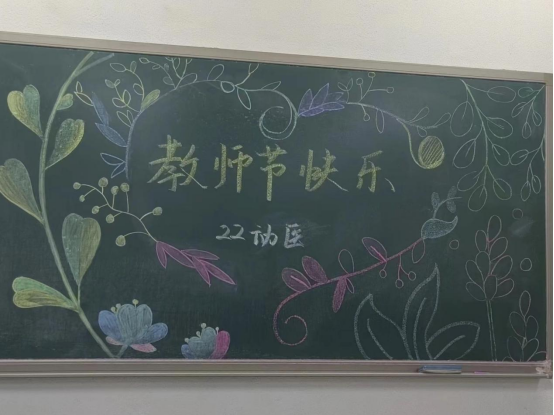 教师节快乐
22动医